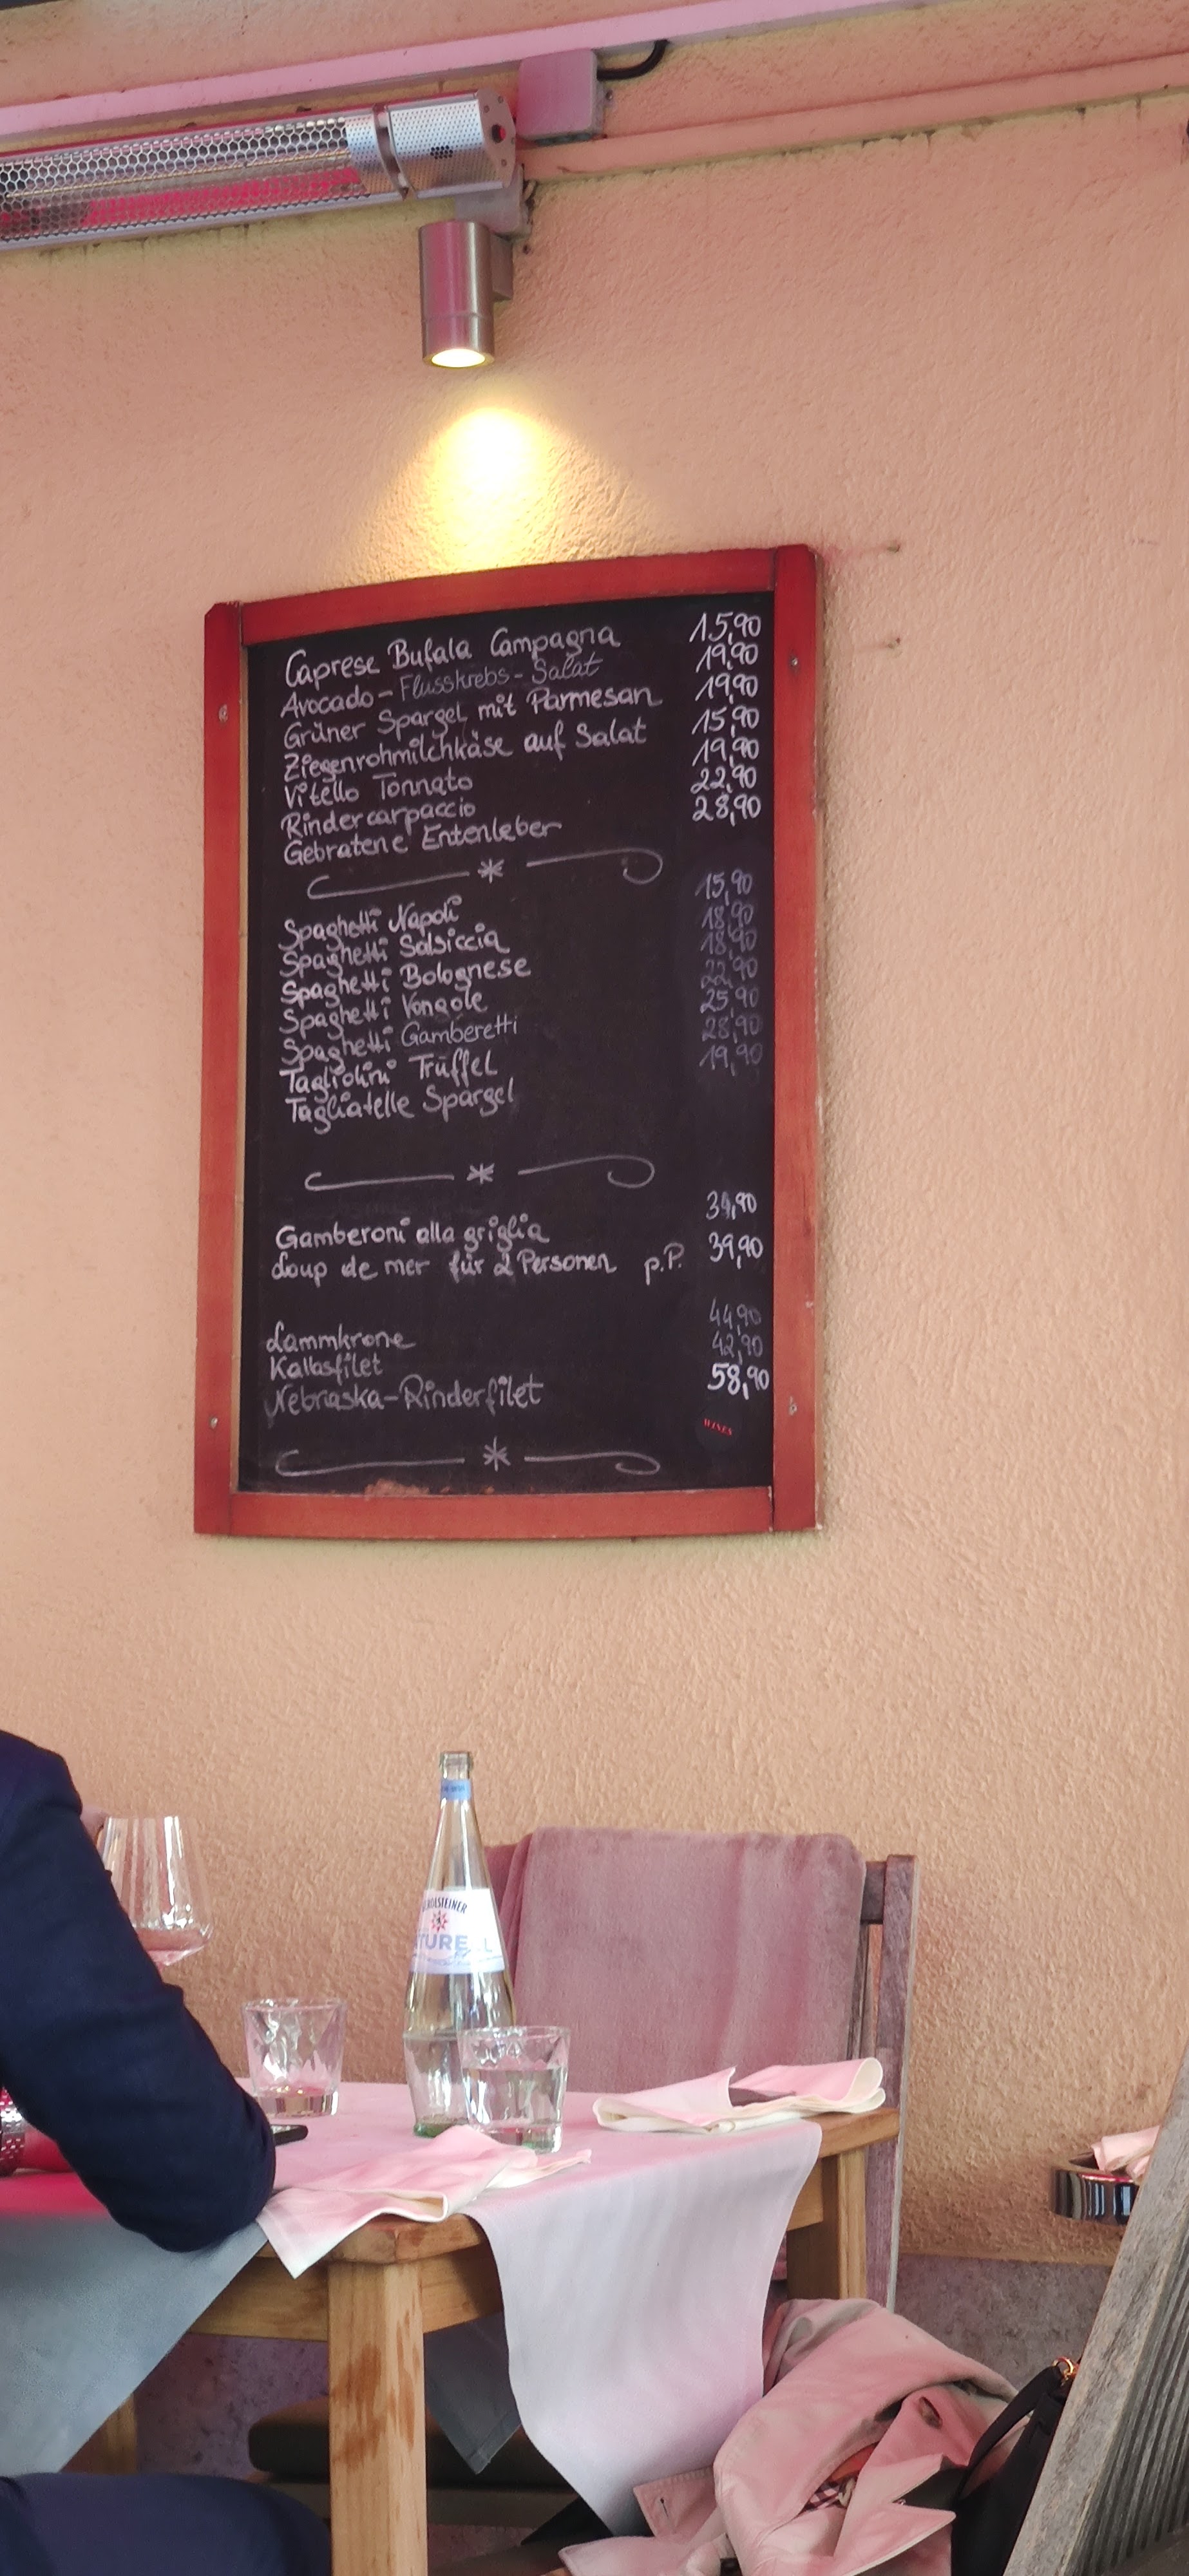 Caprese Bufala Campagna 15,90
Avocado-Flusskrebs-Salat 19,90
Grüner Spargel mit Parmesan 19,90
Ziegenrohmilchkäse auf Salat 15,90
Vitello Tonnato 19,90
Rindercarpaccio 22,90
Gebratene Entenleber 28,90
Spaghetti Napoli 15,90
Spaghetti Salsiccia 18,90
Spaghetti Bolognese 18,90
Spaghetti Vongole 22,90
Spaghetti Gamberetti 25,90
Tagliolini Trüffel 28,90
Tagliatelle Spargel 19,90
Gamberoni alla griglia 39,90
Loup de mer für 2 Personen p.P. 39,90
Lammkrone 44,90
Kalbsfilet 42,90
Nebraska-Rinderfilet 58,90
WINES
ROLSTEINER
TURELL